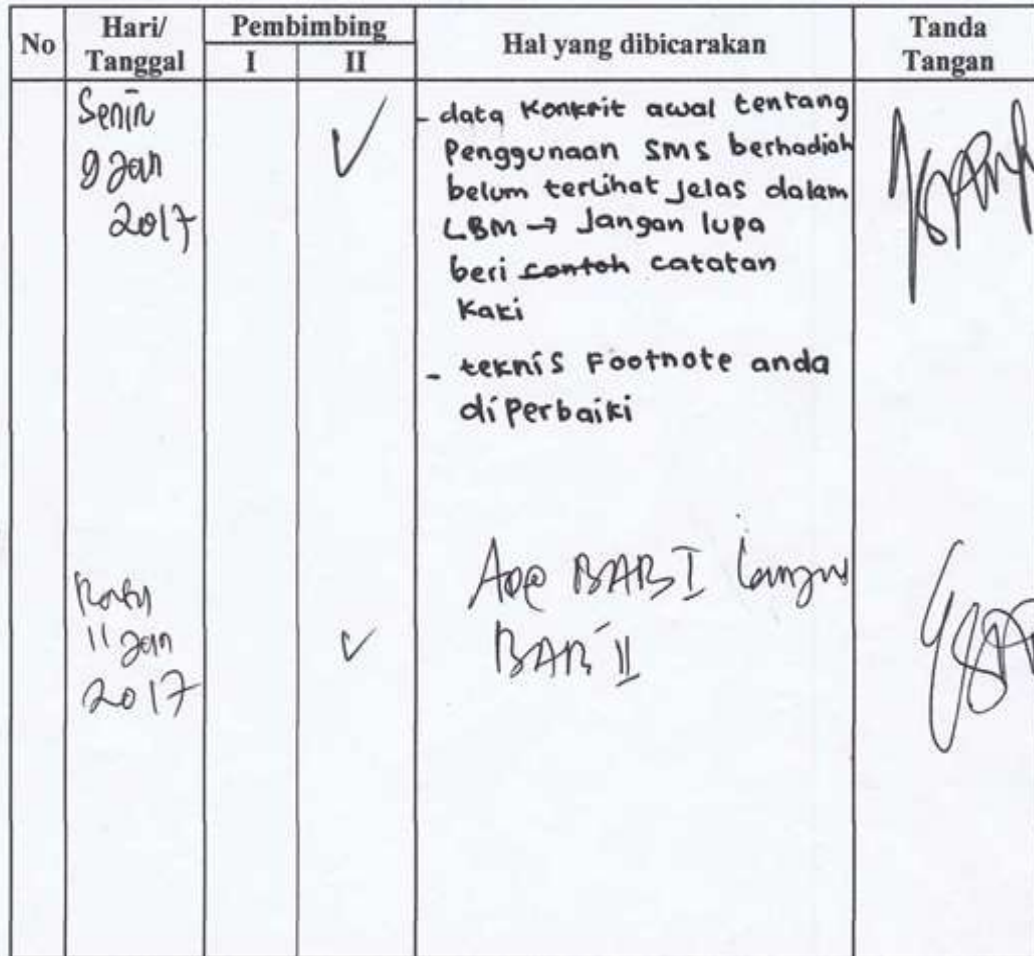 No
Hari/
Tanggal
Pembimbing
I
II
Hal yang dibicarakan
Tanda
Tangan
Senin
9 Jan
2017
- data Konkrit awal tentang
Penggunaan SMS berhadiah
belum terlihat jelas dalam
LBM → Jangan lupa
beri contoh catatan
Kaki
- teknis Footnote anda
diPerbaiki
Rabu
11 Jan
2017
BAB I
BAB II